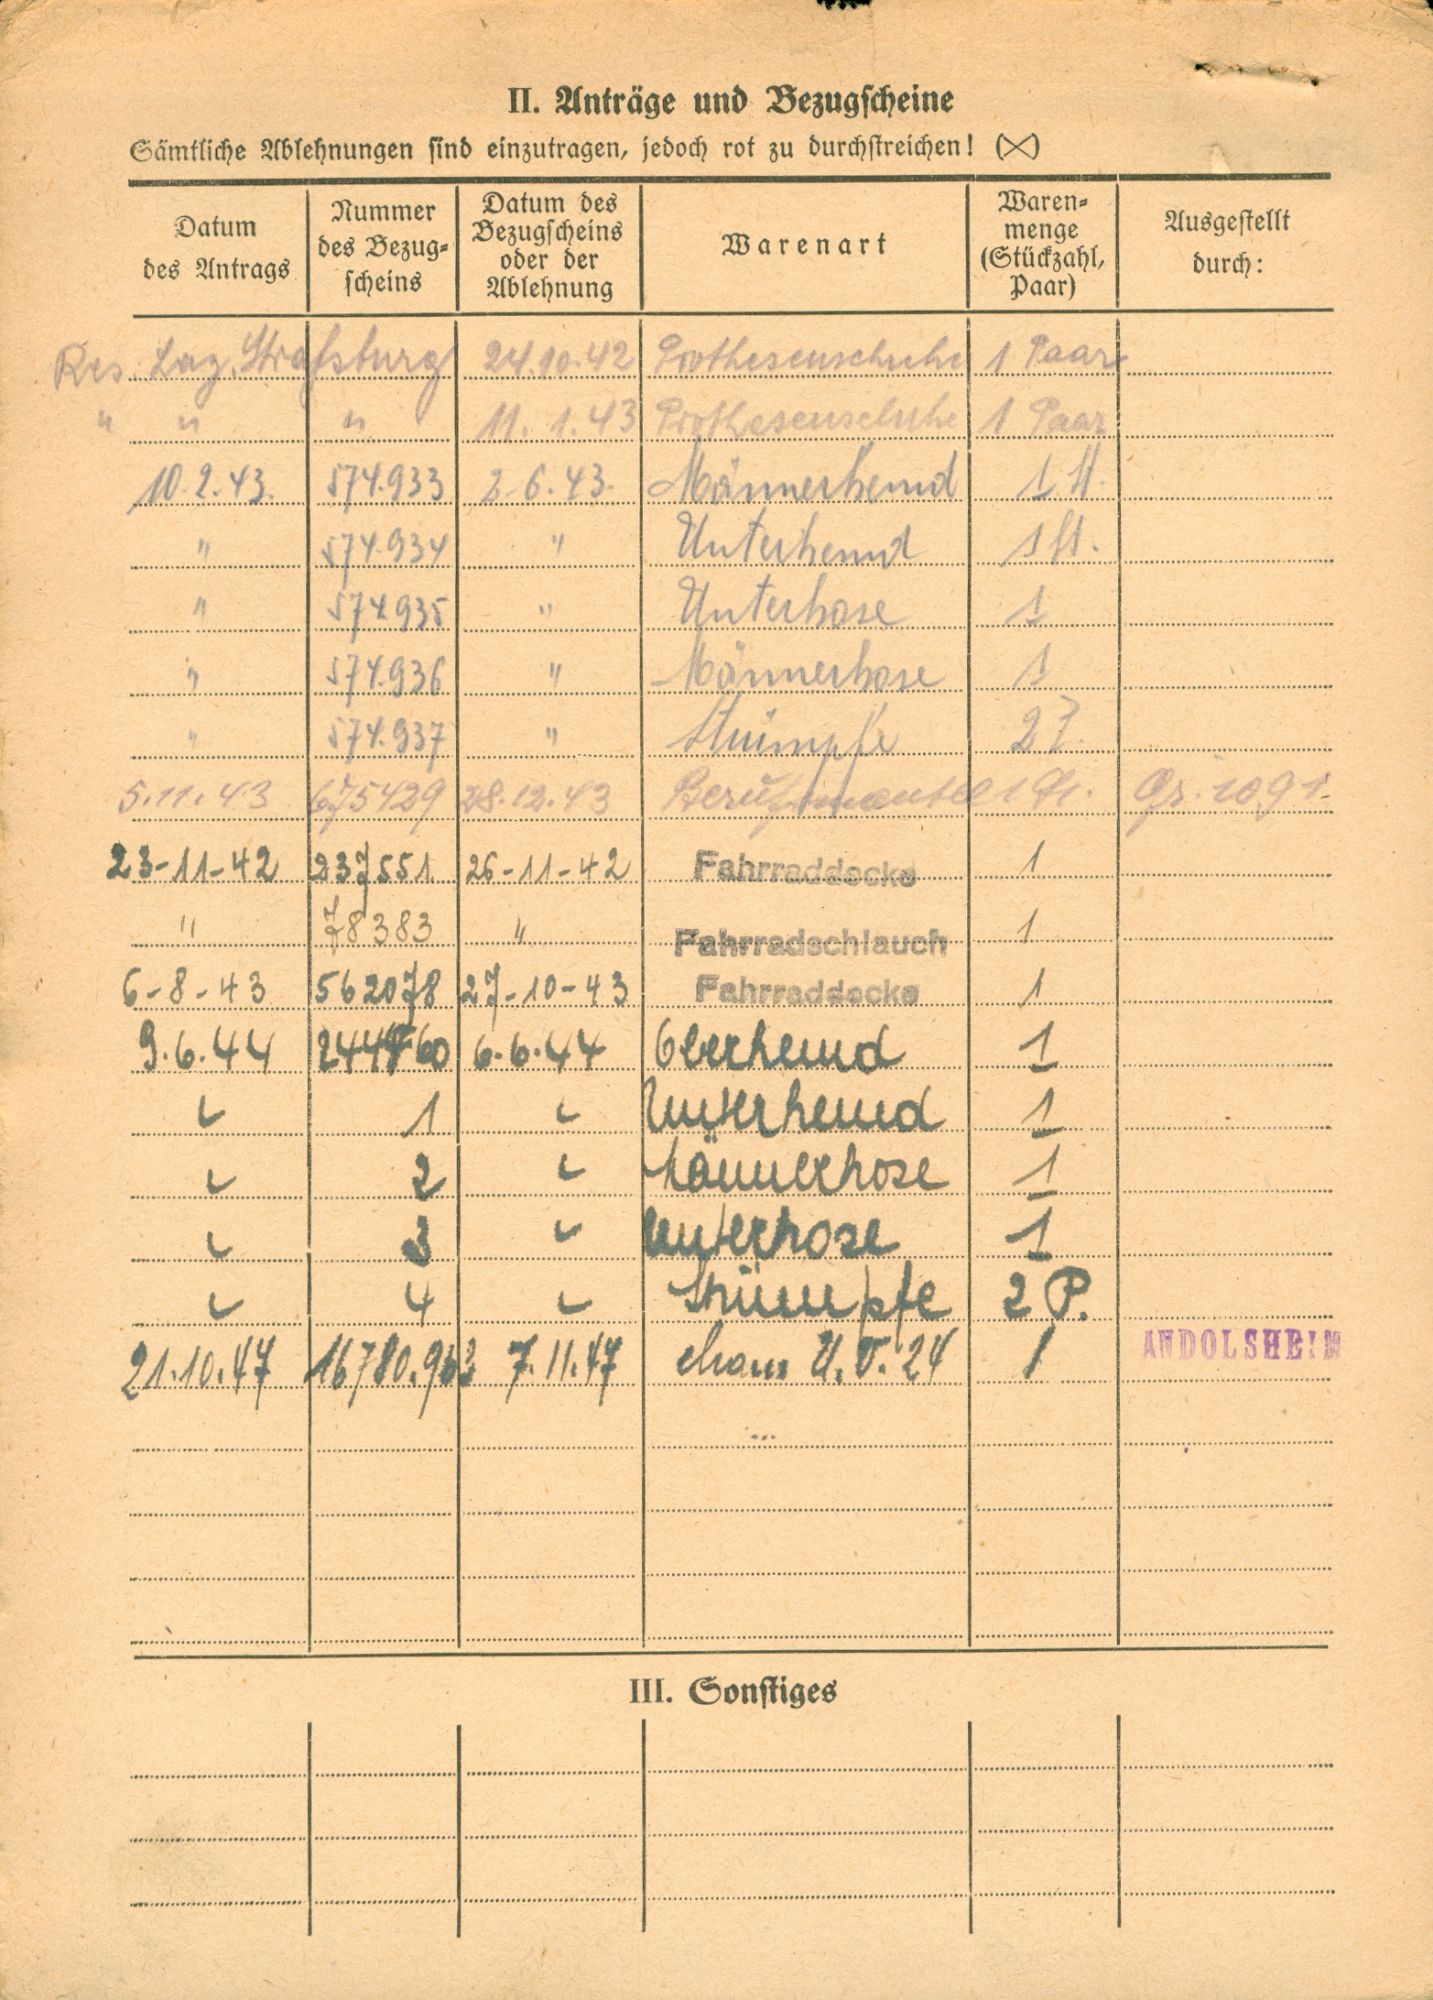 II. Anträge und Bezugscheine
Sämtliche Ablehnungen sind einzutragen, jedoch rot zu durchstreichen! (X)
Datum des Antrags Nummer des Bezug-scheins Datum des Bezugscheins oder der Ablehnung Warenart Waren-menge (Stückzahl, Paar) Ausgestellt durch:
Res. Laz. Strassburg 24.10.42 Prothesenschuhe 1 Paar
" " " 11.1.43 Prothesenschuhe 1 Paar
10.2.43. 574.933 2.6.43. Männerhemd 1 St.
" 574.934 " Unterhemd 1 St.
" 574.935 " Unterhose 1
" 574.936 " Männerhose 1
" 574.937 " Strümpfe 2
5.11.43 675429 28.12.43 Berufsmantel 1 St. Gr. 1091
23-11-42 237551 26-11-42 Fahrraddecke 1
" 78383 " Fahrradschlauch 1
6-8-43 562078 27-10-43 Fahrraddecke 1
9.6.44 6.6.44 Oberhemd 1
" 1 " Unterhemd 1
" 2 " Männerhose 1
" 3 " Unterhose 1
" 4 " Strümpfe 2 P.
21.10.47 7.11.47 U.V. 24 1 ANDOLSHEIM
III. Sonstiges